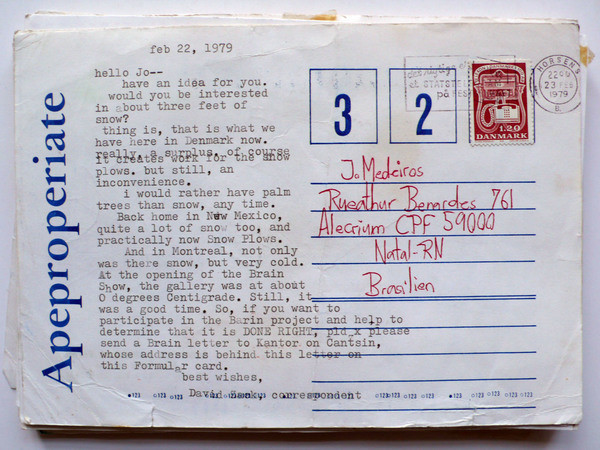 Apeproperiate
feb 22, 1979
hello Jo--
have an idea for you.
would you be interested
in about three feet of
snow?
thing is, that is what we
have here in Denmark now.
really, a surplus. of course
it creates work for the snow
plows. but still, an
inconvenience.
i would rather have palm
trees than snow, any time.
Back home in New Mexico,
quite a lot of snow too, and
practically now Snow Plows.
And in Montreal, not only
was there snow, but very cold.
At the opening of the Brain
Show, the gallery was at about
0 degrees Centigrade. Still, it
was a good time. So, if you want to
participate in the Barin project and help to
determine that it is DONE RIGHT, pld x please
send a Brain letter to Kantor on Cantsin,
whose address is behind this letter on
this Formular card.
best wishes,
David Zack, correspondent
3 2
på
HORSENS
22
23 FEB
1979
B.
1.20
DANMARK
Jo Medeiros
Rueathur Benardes 761
Alecrium CPF 59000
Natal-RN
Brasilien
123 123 123 123 123 123 123